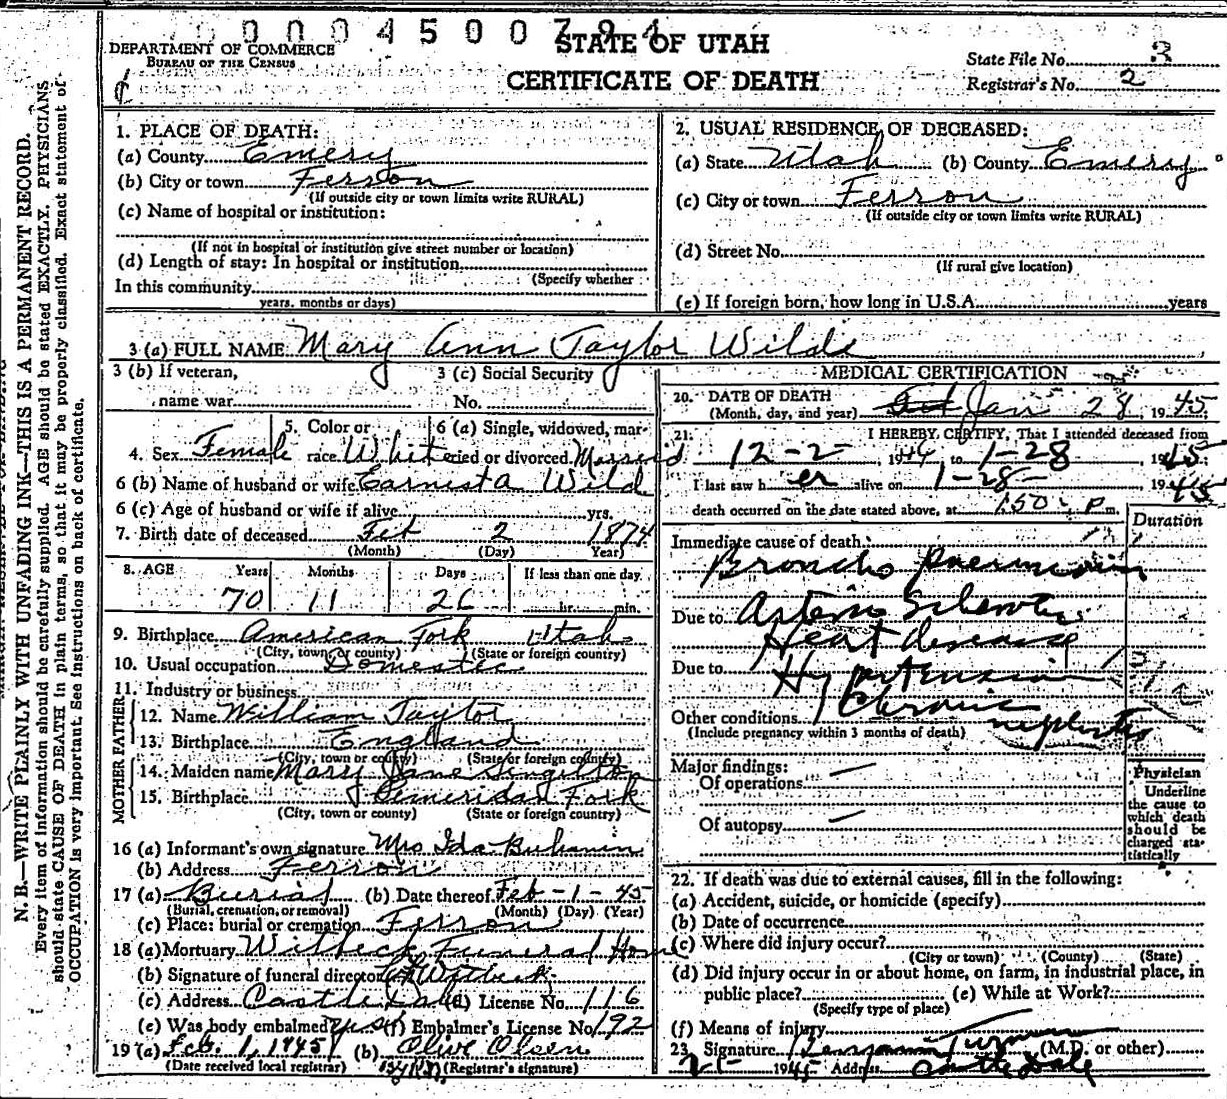 0004500794
STATE OF UTAH
CERTIFICATE OF DEATH
DEPARTMENT OF COMMERCE
BUREAU OF THE CENSUS
State File No. 3
Registrar's No. 2
N. B.—WRITE PLAINLY WITH UNFADING INK—THIS IS A PERMANENT RECORD.
Every item of information should be carefully supplied. AGE should be stated EXACTLY. PHYSICIANS
should state CAUSE OF DEATH in plain terms, so that it may be properly classified. Exact statement of
OCCUPATION is very important. See instructions on back of certificate.
1. PLACE OF DEATH:
(a) County Emery
(b) City or town Ferron
(If outside city or town limits write RURAL)
(c) Name of hospital or institution:
(If not in hospital or institution give street number or location)
(d) Length of stay: In hospital or institution
(Specify whether
In this community
years, months or days)
2. USUAL RESIDENCE OF DECEASED:
(a) State Utah (b) County Emery
(c) City or town Ferron
(If outside city or town limits write RURAL)
(d) Street No.
(If rural give location)
(e) If foreign born, how long in U.S.A. years
3 (a) FULL NAME Mary Ann Taylor Wilde
3 (b) If veteran,
name war
3 (c) Social Security
No.
4. Sex Female
5. Color or
race White
6 (a) Single, widowed, mar-
ried or divorced Married
6 (b) Name of husband or wife Earnist A Wild
6 (c) Age of husband or wife if alive yrs.
7. Birth date of deceased Feb 2 1874
(Month) (Day) Year)
8. AGE Years Months Days If less than one day
70 11 26 hr. min.
9. Birthplace American Fork Utah
(City, town, or county) (State or foreign country)
10. Usual occupation Domestic
11. Industry or business
FATHER
12. Name William Taylor
13. Birthplace England
(City, town or county) (State or foreign country)
MOTHER
14. Maiden name Mary Jane Singilton
15. Birthplace Fork
(City, town or county) (State or foreign country)
16 (a) Informant's own signature Mrs Ida
(b) Address Ferron
17 (a) Burial (b) Date thereof Feb-1-45
(Burial, cremation, or removal) (Month) (Day) (Year)
(c) Place: burial or cremation Ferron
18 (a) Mortuary Witbeck Funeral Home
(b) Signature of funeral director Witbeck
(c) Address Castle Dale (d) License No. 116
(e) Was body embalmed yes (f) Embalmer's License No. 192
19 (a) Feb. 1, 1945 (b) Olive Olsen
(Date received local registrar) (Registrar's signature)
MEDICAL CERTIFICATION
20. DATE OF DEATH
(Month, day, and year) Jan 28, 1945
21. I HEREBY CERTIFY, That I attended deceased from
12-2-, 1944 to 1-28 1945
I last saw h er alive on 1-28- 1945
death occurred on the date stated above, at 1:50 P m.
Duration
Immediate cause of death
Broncho pneumonia
Due to Arterio Sclerotic
Heart disease
Due to Hypertension
Other conditions Chronic nephritis
(Include pregnancy within 3 months of death)
Major findings:
Of operations —
Of autopsy —
Physician
Underline
the cause to
which death
should be
charged sta-
tistically
22. If death was due to external causes, fill in the following:
(a) Accident, suicide, or homicide (specify)
(b) Date of occurrence
(c) Where did injury occur?
(City or town) (County) (State)
(d) Did injury occur in or about home, on farm, in industrial place, in
public place? (e) While at Work?
(Specify type of place)
(f) Means of injury
23. Signature Benjamin Turman (M.D. or other)
1945 Address Castle Dale